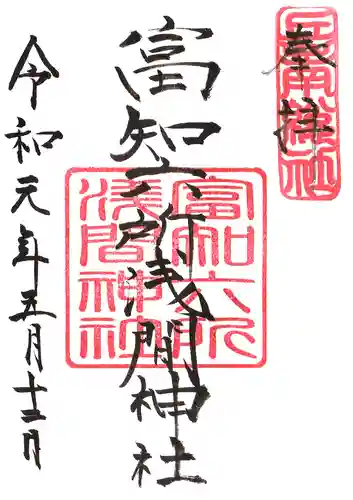 奉拝
富知六所浅間神社
令和元年五月十二日
富知六所
淺間神社